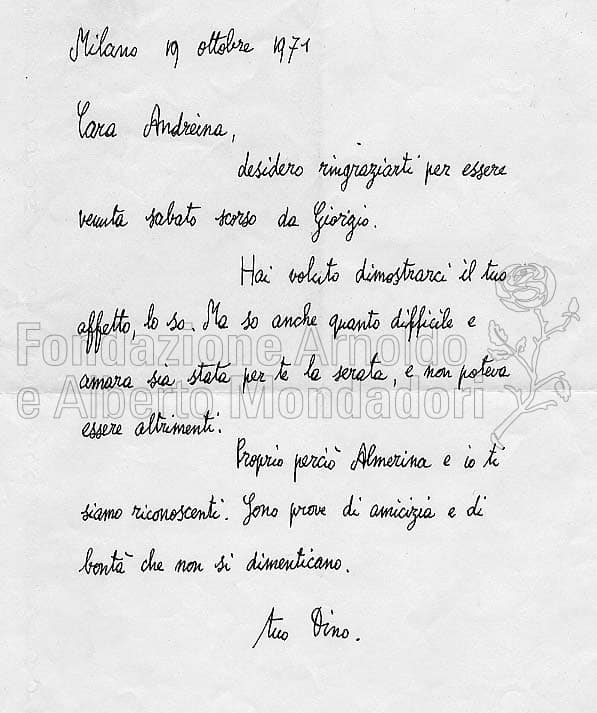 Milano 19 ottobre 1971
Cara Andreina,
desidero ringraziarti per essere
venuta sabato scorso da Giorgio.
Hai voluto dimostrarci il tuo
affetto, lo so. Ma so anche quanto difficile e
Fondazione Arnoldo
amara sia stata per te la serata, e non poteva
e Alberto Mondadori
essere altrimenti.
Proprio perciò Almerina e io ti
siamo riconoscenti. Sono prove di amicizia e di
bontà che non si dimenticano.
tuo Dino.